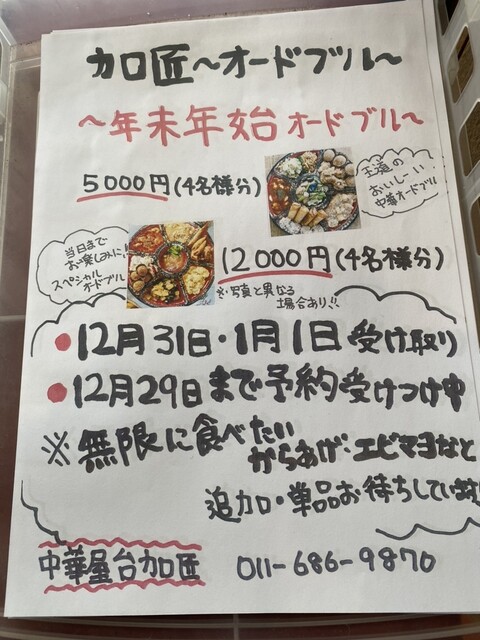 加匠～オードブル～
～年末年始オードブル～
5000円(4名様分)
王道の
おいしーい
中華オードブル
当日まで
お楽しみに!!
スペシャル
オードブル
12000円(4名様分)
※写真と異なる
場合あり!!
•12月31日・1月1日受け取り
•12月29日まで予約受けつけ中
※無限に食べたい
からあげ・エビマヨなど
追加・単品お待ちしています
中華屋台加匠 011-686-9870